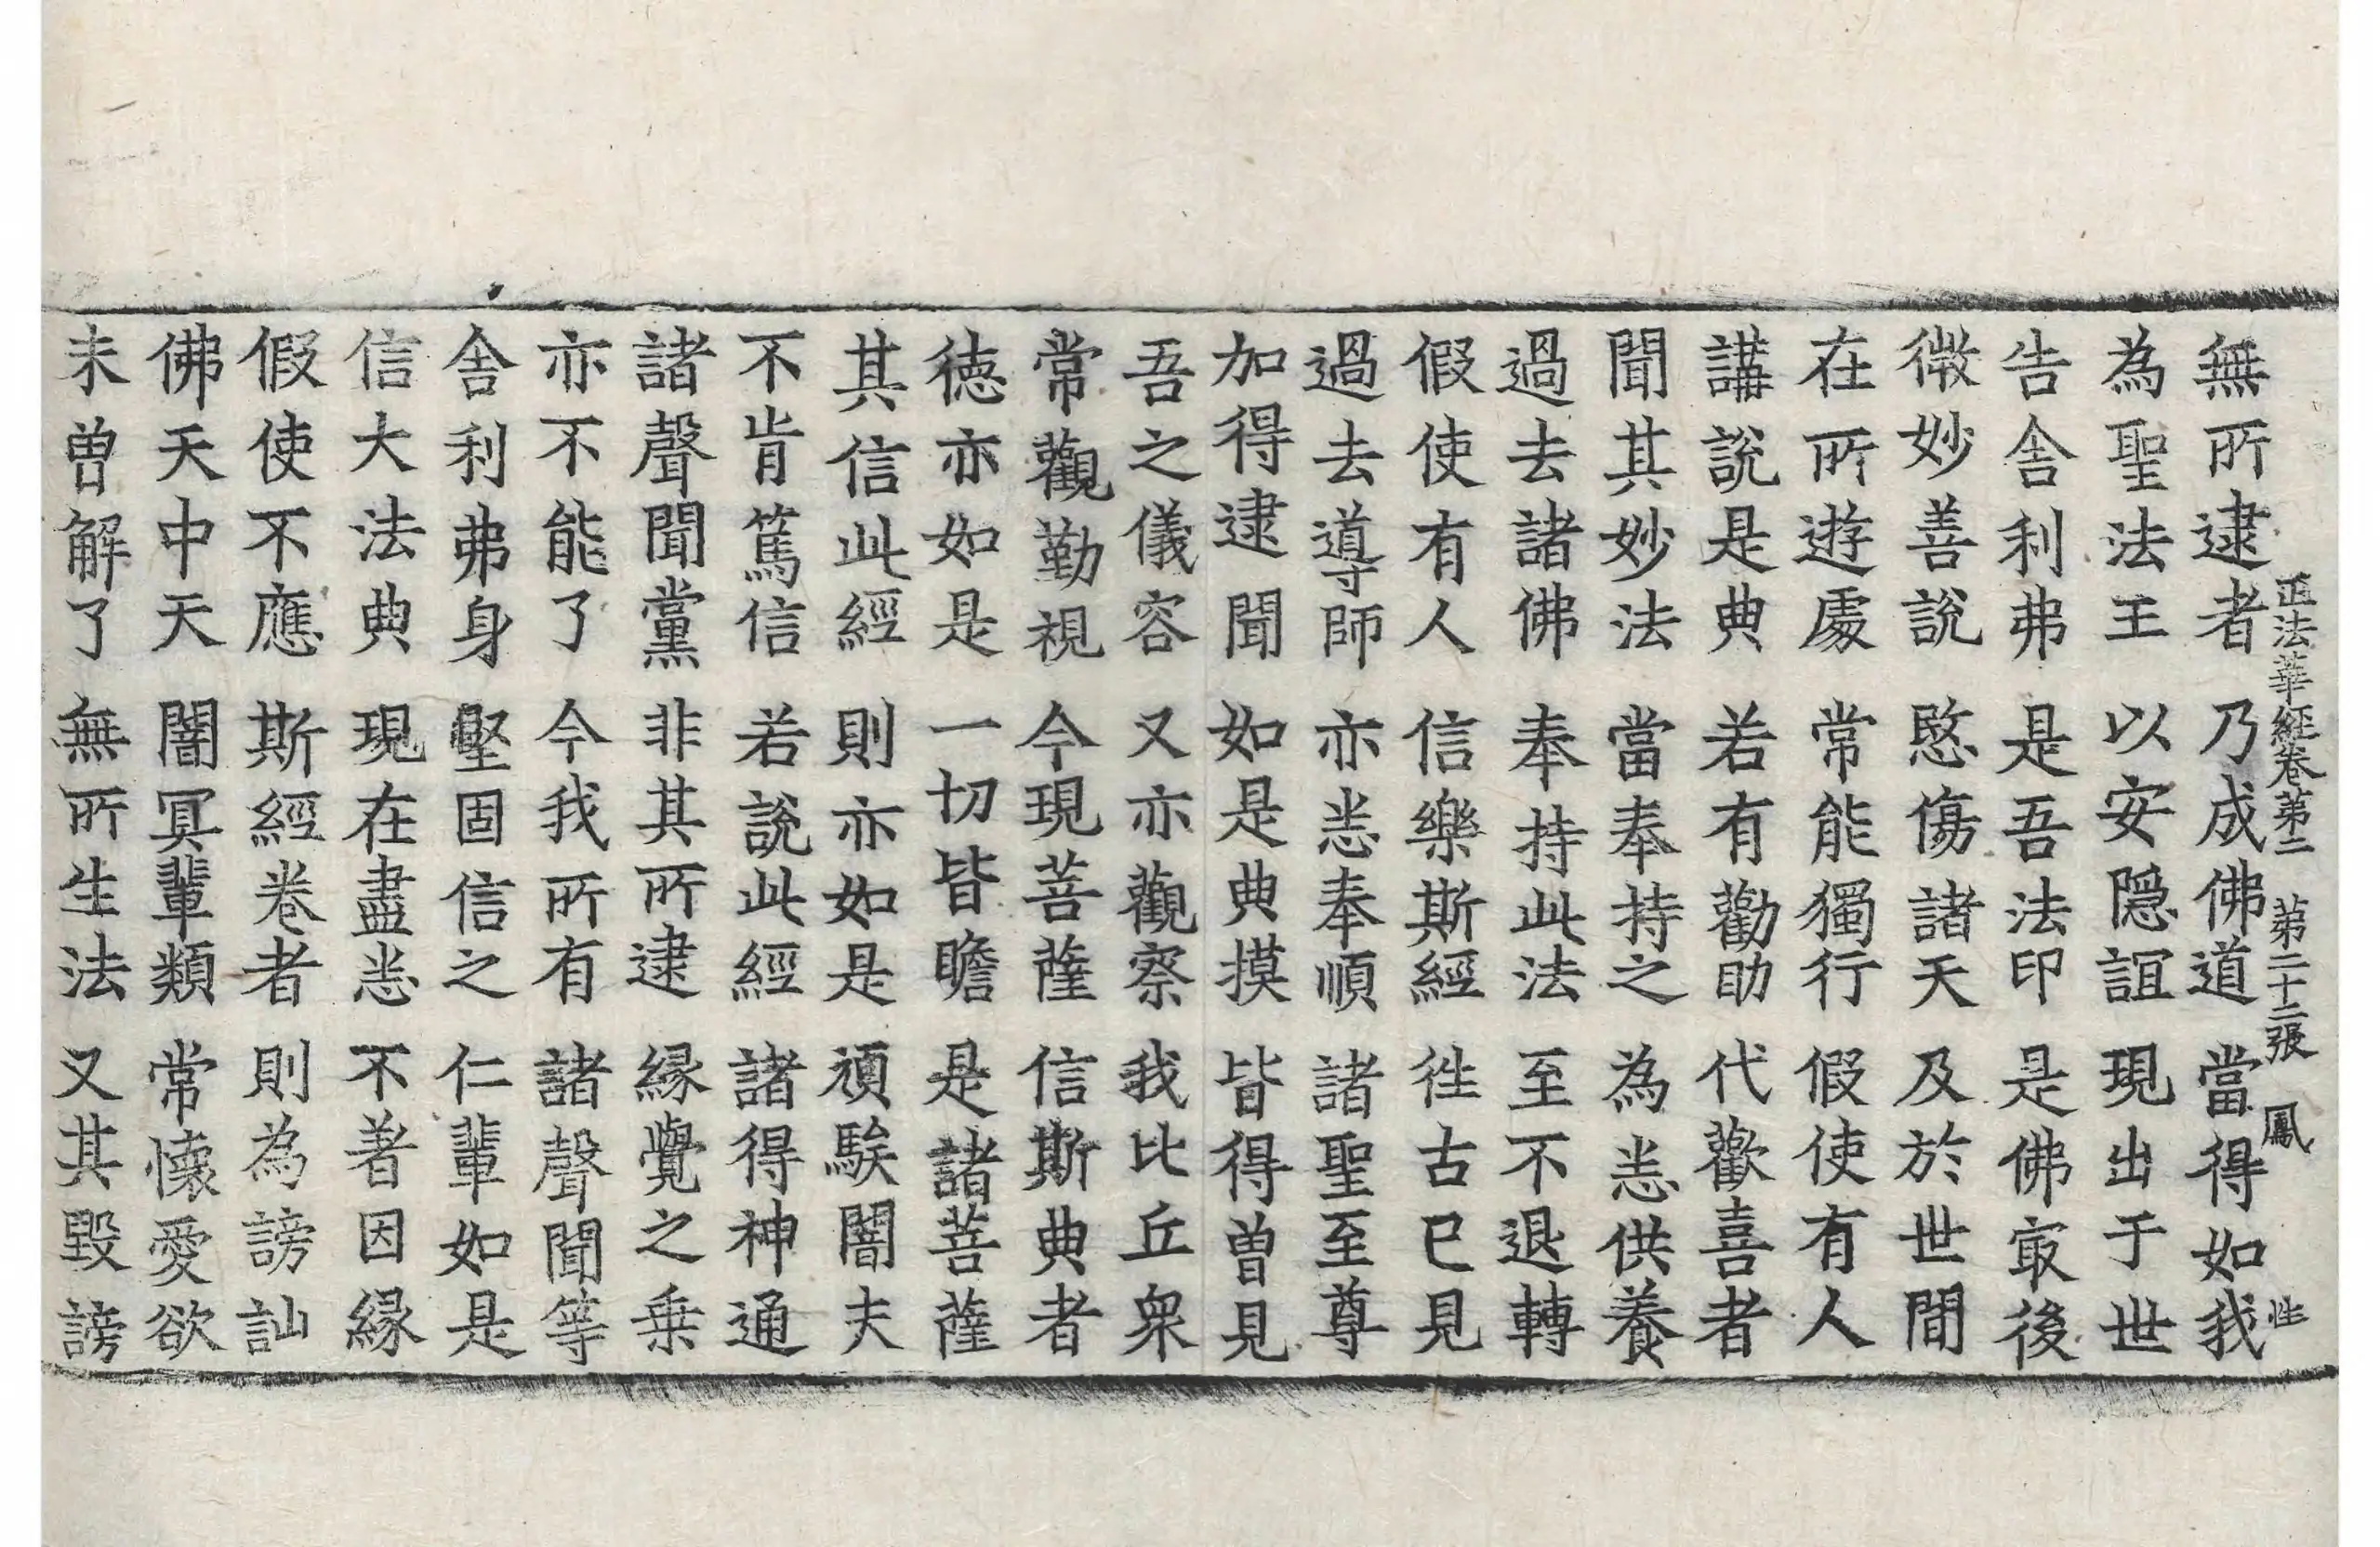 正法華經卷第二 第二十二張 鳳 性
無所逮者 乃成佛道 當得如我
為聖法王 以安隱誼 現出于世
告舍利弗 是吾法印 是佛㝡後
微妙善說 愍傷諸天 及於世間
在所遊處 常能獨行 假使有人
講說是典 若有勸助 代歡喜者
聞其妙法 當奉持之 為恙供養
過去諸佛 奉持此法 至不退轉
假使有人 信樂斯經 徃古已見
過去導師 亦恙奉順 諸聖至尊
加得逮聞 如是典摸 皆得曽見
吾之儀容 又亦觀察 我比丘衆
常觀勤視 今現菩薩 信斯典者
徳亦如是 一切皆瞻 是諸菩薩
其信此經 則亦如是 頑騃闇夫
不肯篤信 若說此經 諸得神通
諸聲聞黨 非其所逮 縁覺之乗
亦不能了 今我所有 諸聲聞等
舍利弗身 堅固信之 仁輩如是
信大法典 現在盡恙 不著因縁
假使不應 斯經卷者 則為謗訕
佛天中天 闇冥輩類 常懐愛欲
未曽解了 無所生法 又其毀謗